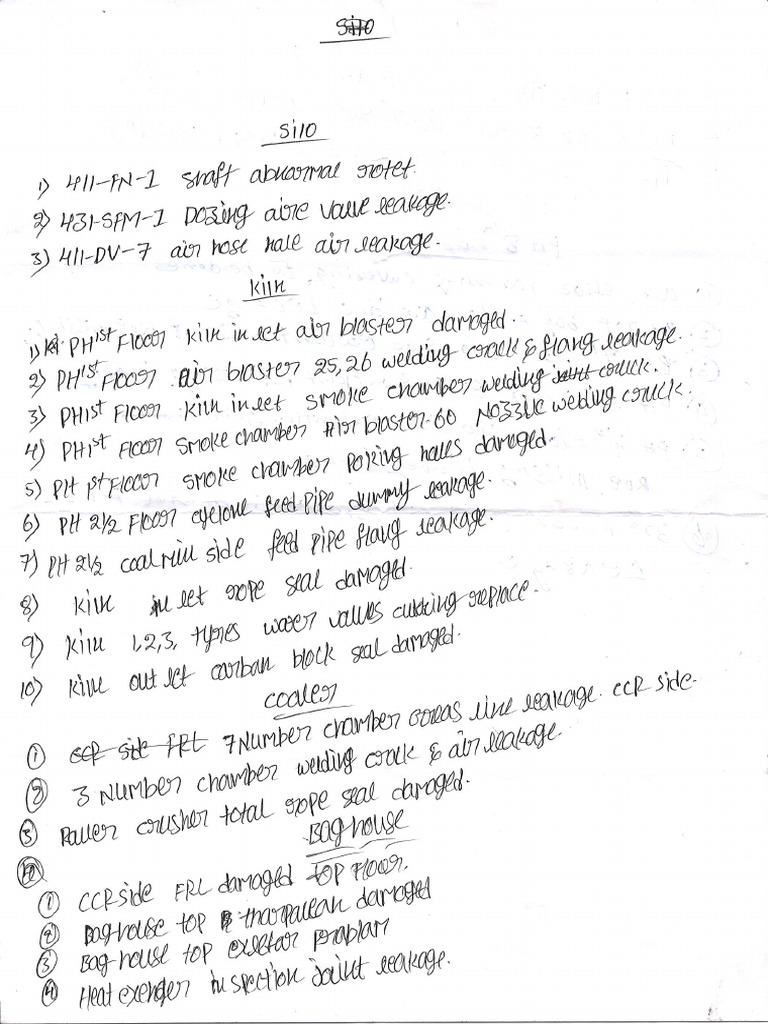 Silo
Silo
1) 411-FN-1 shaft abnormal rotet.
2) 431-SFM-1 Dozing aire valve leakage.
3) 411-DV-7 air hose hale air leakage.
Kiln
1) PH 1st Floor kiln inlet air blaster damaged.
2) PH 1st Floor air blaster 25,26 welding crack & flang leakage.
3) PH 1st Floor kiln inlet smoke chamber welding joint crack.
4) PH 1st Floor smoke chamber Air blaster-60 Nozzle welding crack.
5) PH 1st Floor smoke chamber poking hales damaged.
6) PH 2 1/2 Floor cyclone feed pipe dummy leakage.
7) PH 2 1/2 coal mill side feed pipe flang leakage.
8) kiln inlet rope seal damaged.
9) kiln 1,2,3, tyres water valves replace.
10) kiln outlet carban block seal damaged.
cooler
① CCR side FRL 7 Number chamber line leakage. CCR side.
② 3 Number chamber welding crack & air leakage.
③ Raller crusher total rope seal damaged.
Bag house
① CCR side FRL damaged top Floor.
② Bag house top tharpallan damaged
③ Bag-house top problam
④ Heat exenger inspection joint leakage.